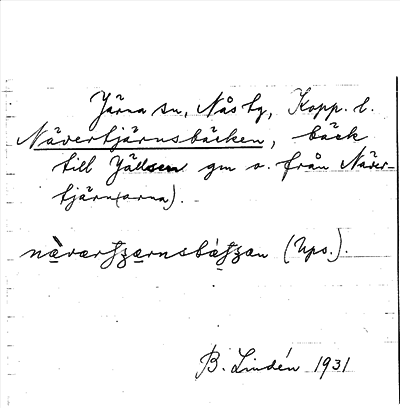 Järna sn, Nås tg, Kopp. l.
Nävertjärnsbäcken, bäck
till Jällsen gm o. från Näver-
tjärn(arna).
(Ups.).
B. Lindén 1931